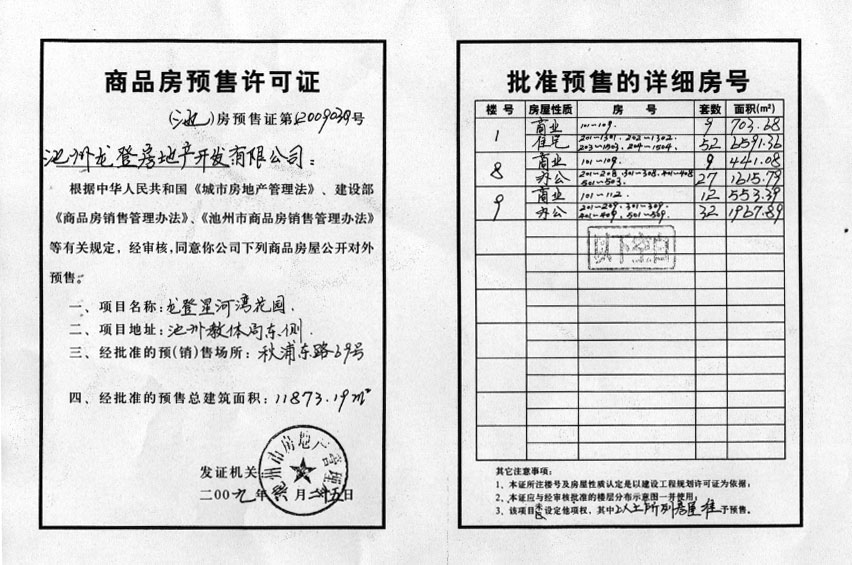 商品房预售许可证
(池)房预售证第2009039号
池州龙登房地产开发有限公司：
根据中华人民共和国《城市房地产管理法》、建设部
《商品房销售管理办法》、《池州市商品房销售管理办法》
等有关规定，经审核，同意你公司下列商品房屋公开对外
预售。
一、项目名称：龙登星河湾花园.
二、项目地址：池州教体局东侧.
三、经批准的预(销)售场所：秋浦东路69号
四、经批准的预售总建筑面积：11873.19m²
池州市房地产管理
发证机关：
二00九年 月二十五日
批准预售的详细房号
楼号 房屋性质 房号 套数 面积(m²)
1 商业 101-109. 9 703.68
住宅 201-1301. 202-1302. 203-1503. 204-1504. 52 6591.36
8 商业 101-109. 9 441.08
办公 201-208. 301-308. 401-408 501-503. 27 1615.79
9 商业 101-112. 12 553.39
办公 201-209. 301-309. 401-409. 501-509. 32 1967.89
以下空白
其它注意事项：
1、本证所注楼号及房屋性质认定是以建设工程规划许可证为依据；
2、本证应与经审核批准的楼层分布示意图一并使用；
3、该项目 设定他项权，其中以上所列房屋准予预售。